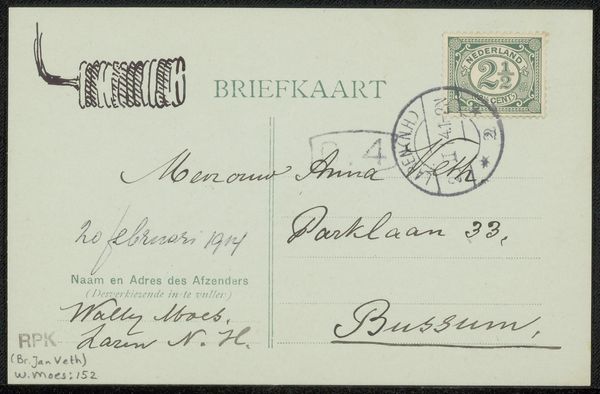 NEDERLAND
2½
CENT
BRIEFKAART
LAREN (N.H.)
Mevrouw Anna Veth
20 februari 1914
Parklaan 33.
Naam en Adres des Afzenders
(Desverkiezende in te vullen)
Wally Moes.
Laren N. H.
Bussum.
RPK
(Br. Jan Veth)
W. Moes: 152